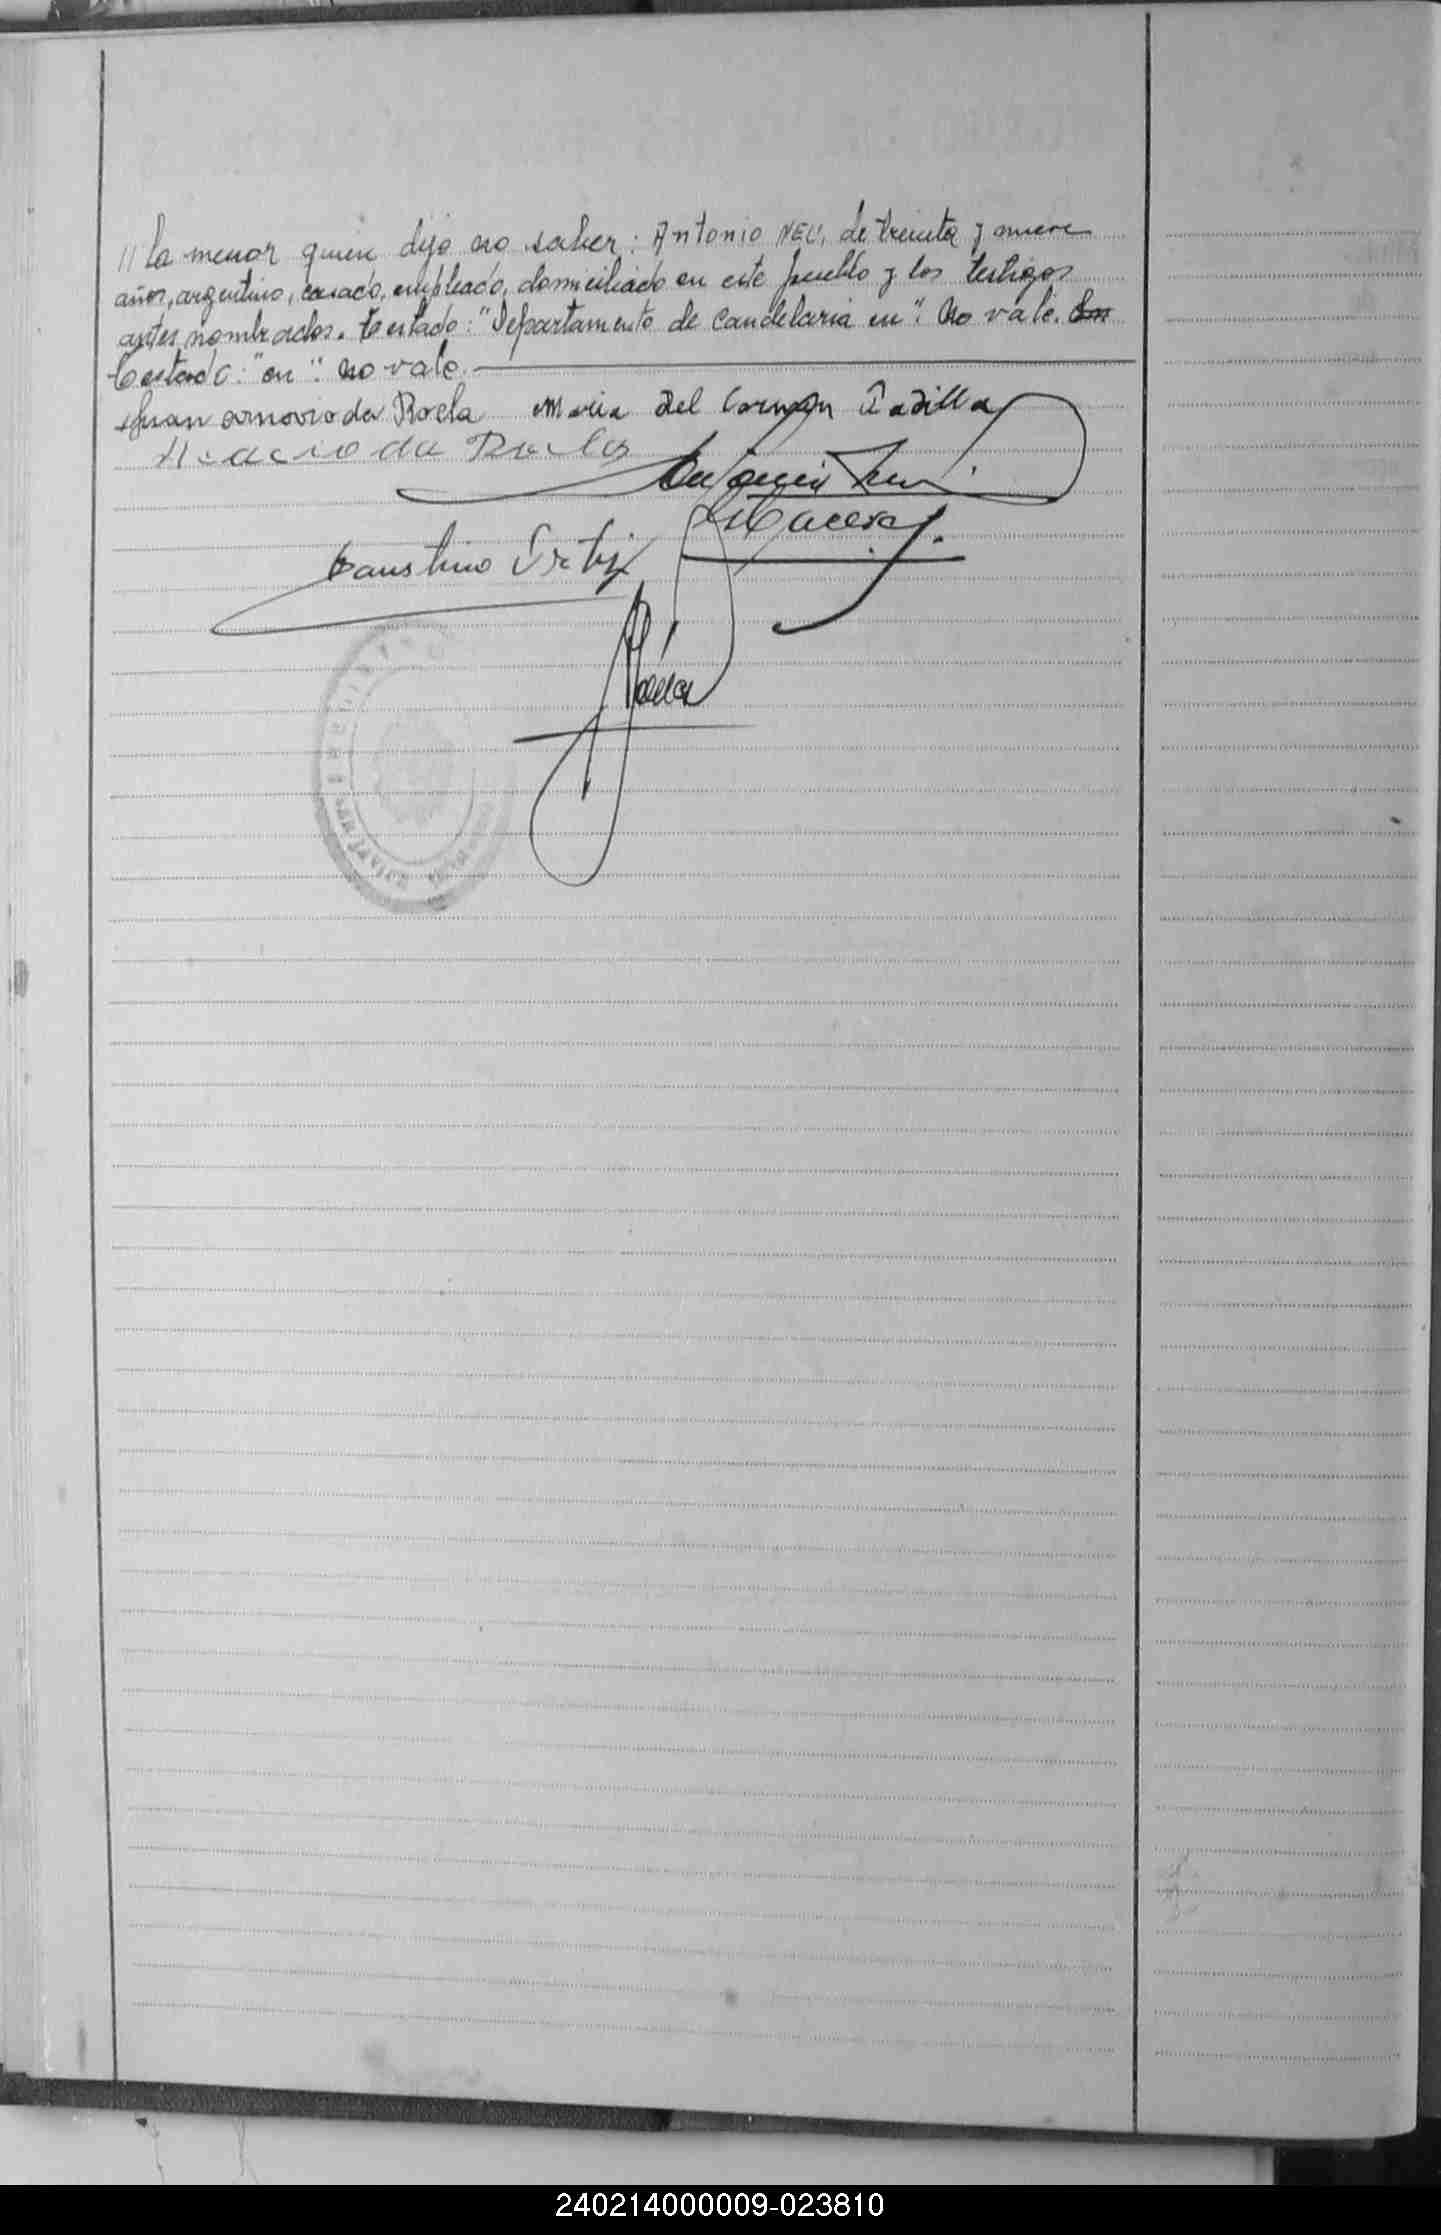 // la menor quien dijo no saber: Antonio NEU, de treinta y nueve
años, argentino, casado, empleado, domiciliado en este pueblo y los testigos
antes nombrados. Testado: "Departamento de Candelaria en": No vale.
Testado: "en": no vale.
Juan da Rocha Maria Del Carmen Padilla
da Rocha
Antonio Neu
Faustino Ortiz
240214000009-023810